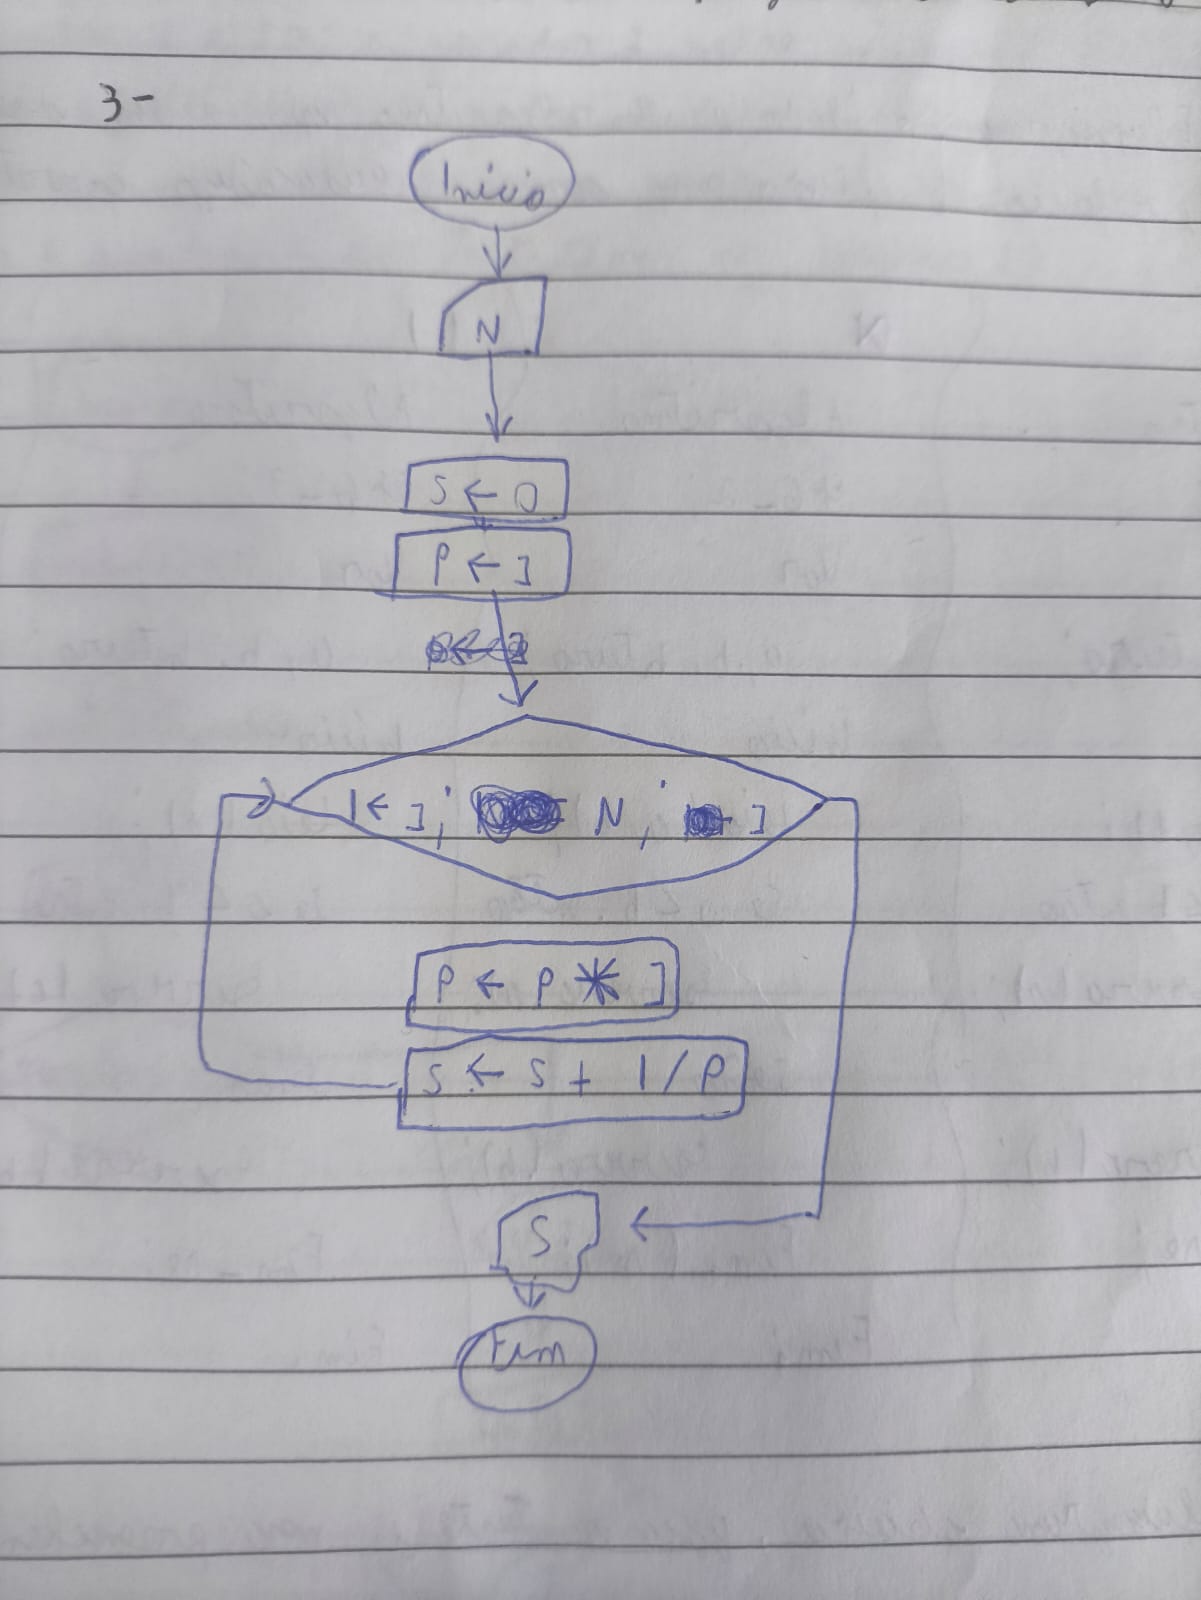 3-
Inicio
N
S ← 0
P ← 1
I ← 1; N; 1
P ← P * I
S ← S + 1/P
S
Fim